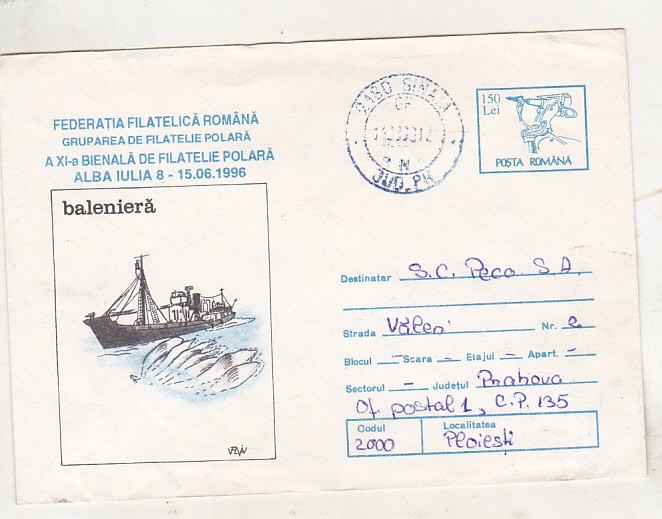 FEDERAȚIA FILATELICĂ ROMÂNĂ
GRUPAREA DE FILATELIE POLARĂ
A XI-a BIENALĂ DE FILATELIE POLARĂ
ALBA IULIA 8 - 15.06.1996
balenieră
2180 SINAIA
OF
JUD. PH
150
Lei
POȘTA ROMÂNĂ
Destinatar S.C. Peco S.A.
Strada Văleni Nr. 2
Blocul - Scara - Etajul - Apart. -
Sectorul - Județul Prahova
Of. postal 1, C.P. 135
Codul Localitatea
2000 Ploiești